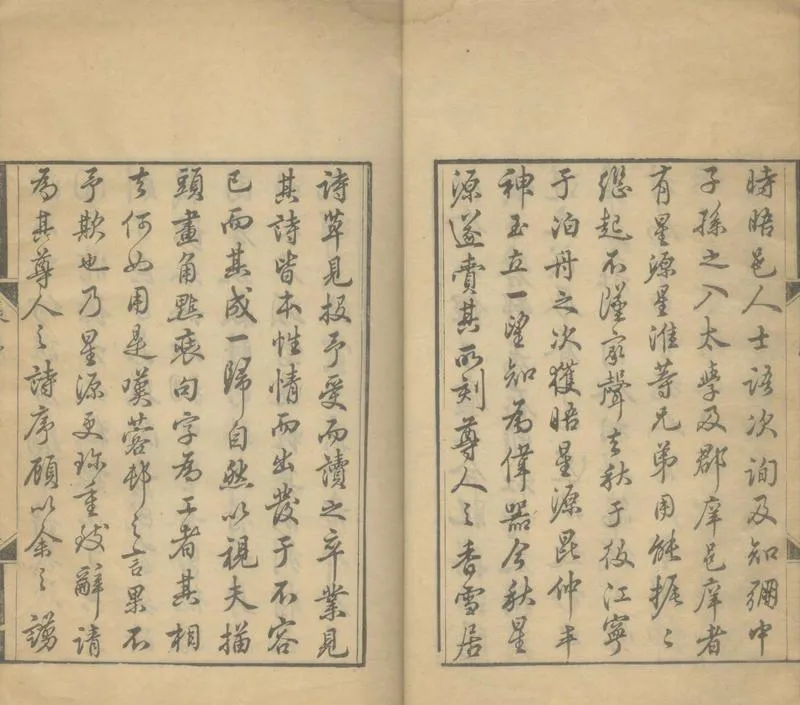 時晤邑人士語次詢及知彌中
子孫之入太學及郡庠邑庠者
有星源星淮等兄弟用能振〻
繼起不墜家聲去秋于役江寧
于泊舟之次獲晤星源昆仲丰
神玉立一望知為偉器今秋星
源遂賚其所刻尊人之香雪居
詩草見投予受而讀之卒業見
其詩皆本性情而出發于不容
已而其成一歸自然以視夫描
頭畫角點裒句字為工者其相
去何如用是嘆蓉邨之言果不
予欺也乃星源更珍重致辭請
為其尊人之詩序顧以余之謭